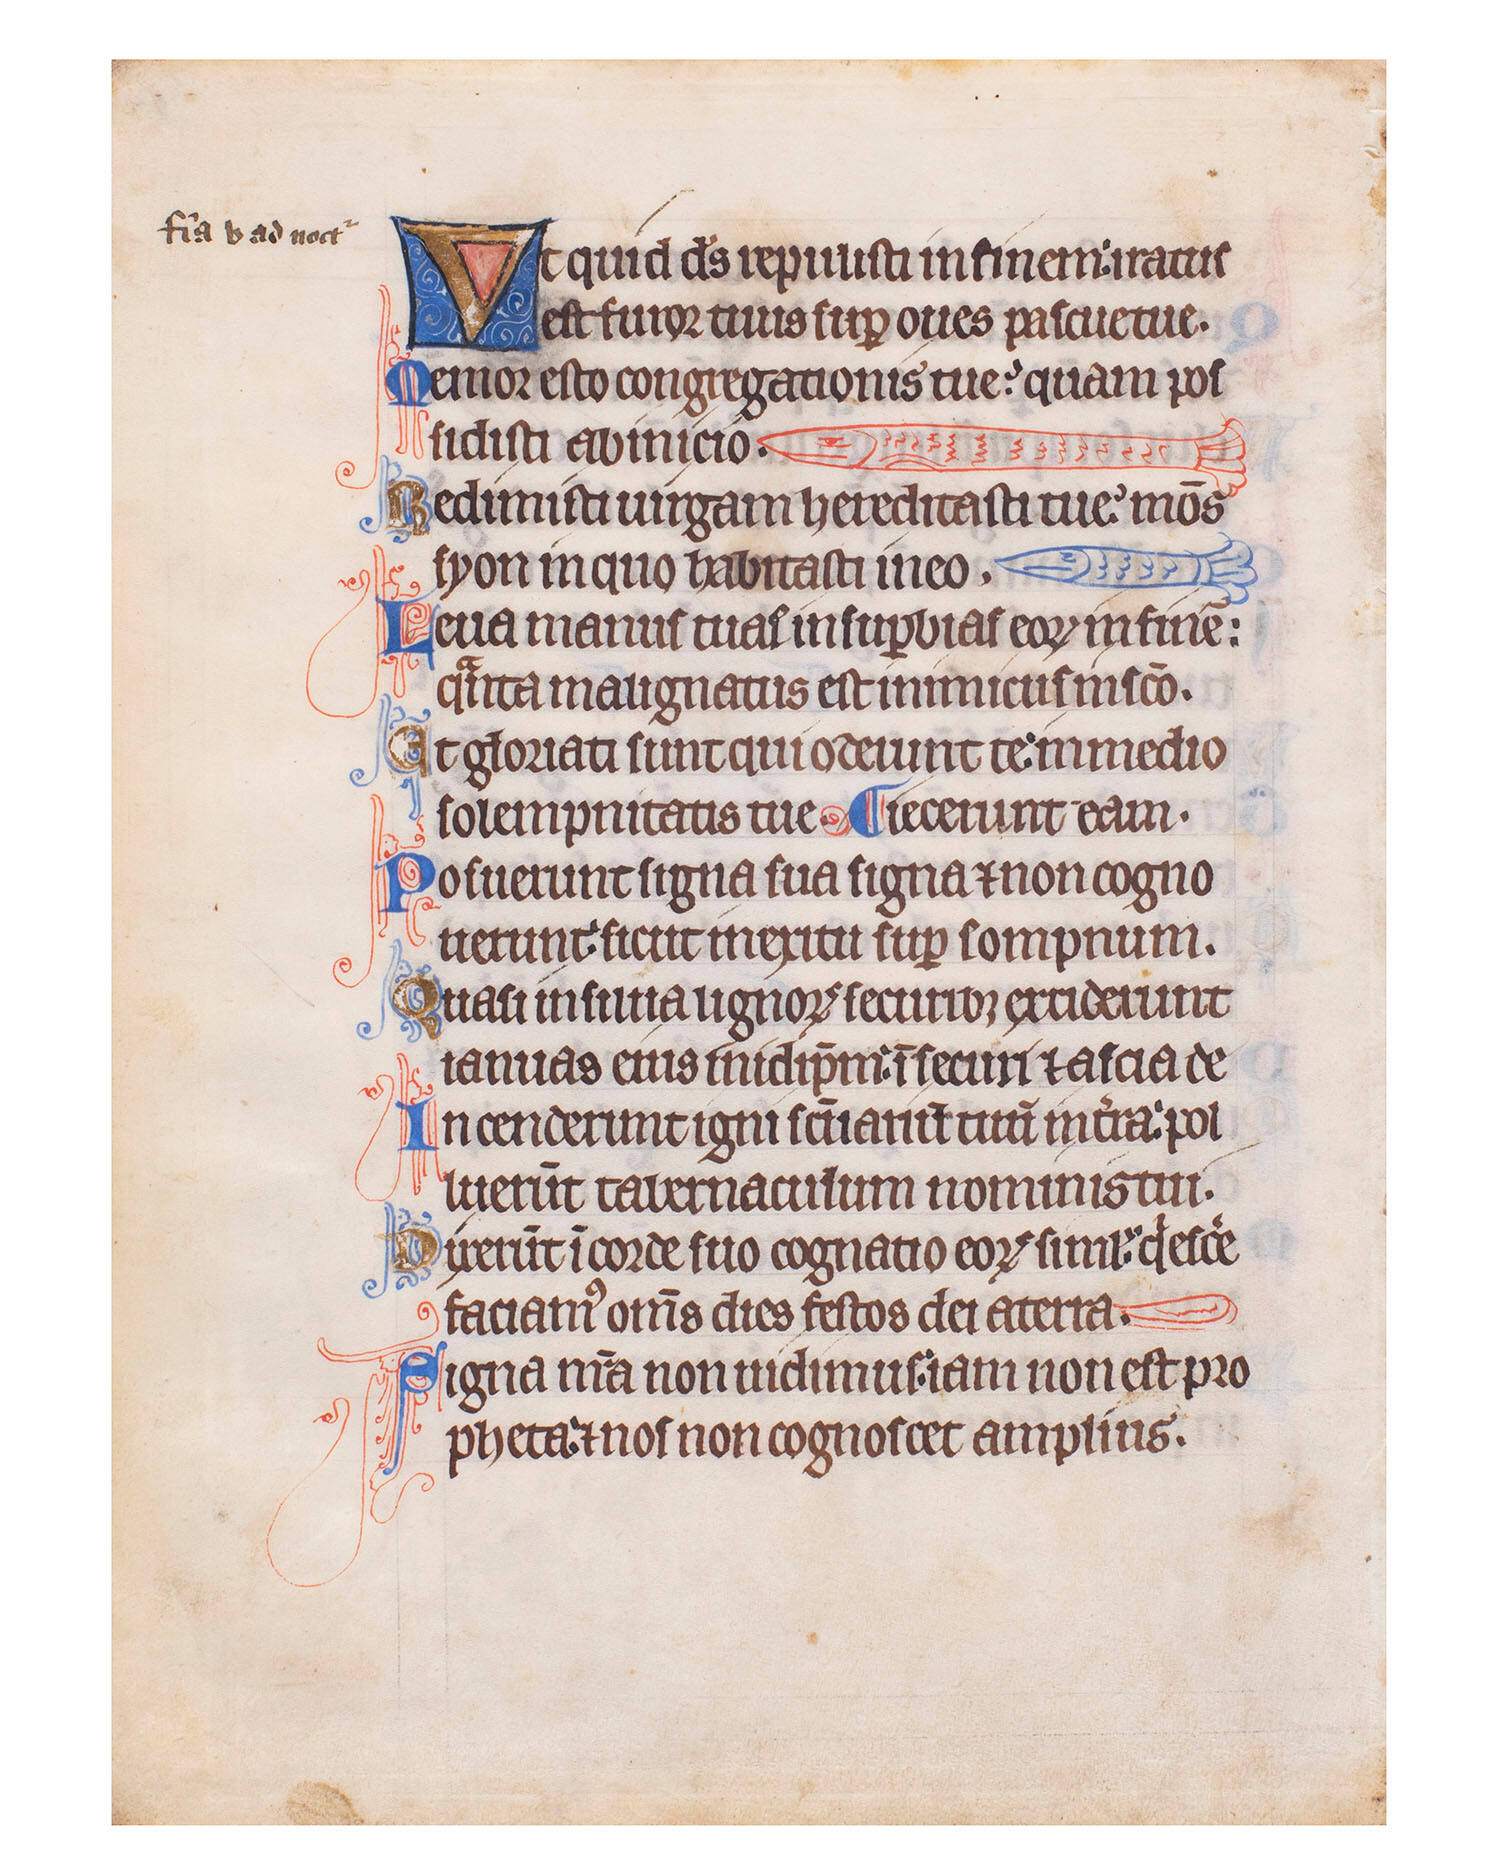 fr̄a v ad noct᷑
Vt quid ds̄ repuiisti in finem: iratus
est furor tuus sup̱ oues pascue tue.
Memor esto congregationis tue: quam pos
sidisti ab inicio.
Redimisti uirgam hereditasti tue: mōs
syon in quo habitasti in eo.
Leua manus tuas in sup̱bias eoꝝ in finē:
qᵃnta malignatus est inimicus in sc̄o.
Et gloriati sunt qui oderunt te: in medio
solempnitatis tue. Ciecerunt eam.
Posuerunt signa sua signa ⁊ non cogno
uerunt: sicut in exitu sup̱ sompnum.
Quasi in silua lignoꝝ securibꝫ exciderunt
ianuas eius in idip̄m: ī securi ⁊ ascia de
In cenderunt igni sc̄uariū tuū in tr̄ra: pol
luerūt tabernaculum nominis tui.
Dixerūt ī corde suo cognatio eoꝝ simł: q̇escḗ
faciamꝰ om̄s dies festos dei a terra.
Signa nr̄a non uidimus: iam non est pro
pheta: ⁊ nos non cognoscet amplius.